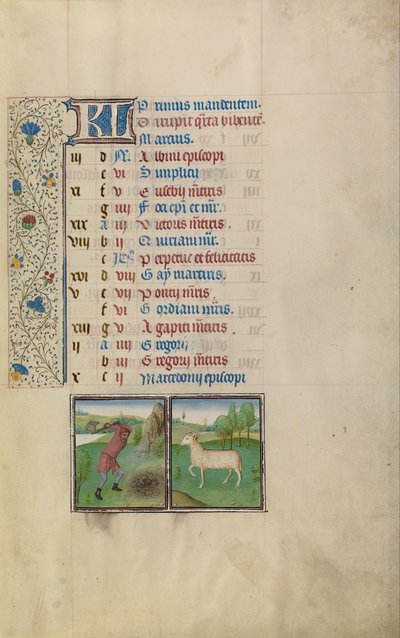 KL Primus mandentem.
Disrupit q̄rta bibentē.
Marcius.
iii d N. Albini episcopi
e vi Simplicii
xi f v Eusebii m̄tiris
g iiii Foci ep̄i et m̄r.
xix a iii Victoris m̄tiris.
viii b ii Quiriani m̄r.
c Perpetue et felicitatis
xvi d viii Gay martiris.
v e vii Poncii m̄ris
f vi Gordiani m̄ris.
xiii g v Agapiti m̄tiris
ii a iiii Gregorii
b iii Gregorii m̄tiris
x c ii Macedonii episcopi